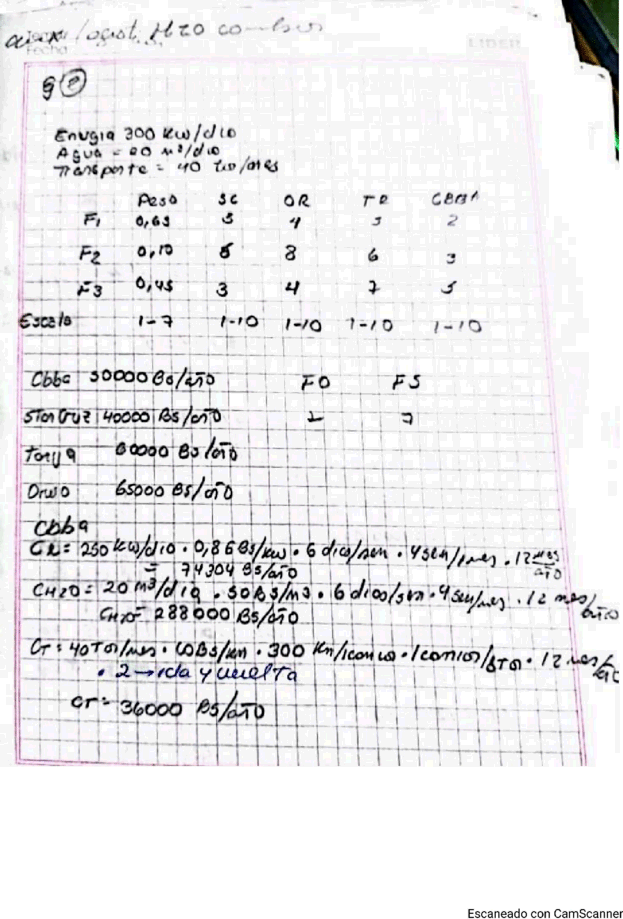 Fecha LIDER
Energia 300 Kw/dia
Agua = 20 m³/dia
Transporte = 40 ton/mes
Peso SC OR TR CBBA
F1 0,65 5 4 5 2
F2 0,10 8 8 6 3
F3 0,45 3 4 7 5
Escala 1-7 1-10 1-10 1-10 1-10
Cbba 50000 Bs/año FO FS
Sta Cruz 40000 Bs/año 7
Tarija 60000 Bs/año
Oruro 65000 Bs/año
Cbba
250 Kw/dia . 0,86 Bs/Kw . 6 dias/sem . 4 sem/mes . 12 mes/año
= 74304 Bs/año
CH2O = 20 m³/dia . 50 Bs/m³ . 6 dias/sem . 4 sem/mes . 12 mes/año
CH2O = 288000 Bs/año
CT = 40 Ton/mes . 10 Bs/km . 300 Km/camion . 1 camion/8 Ton . 12 mes/
. 2 → ida y vuelta
CT = 36000 Bs/año
Escaneado con CamScanner